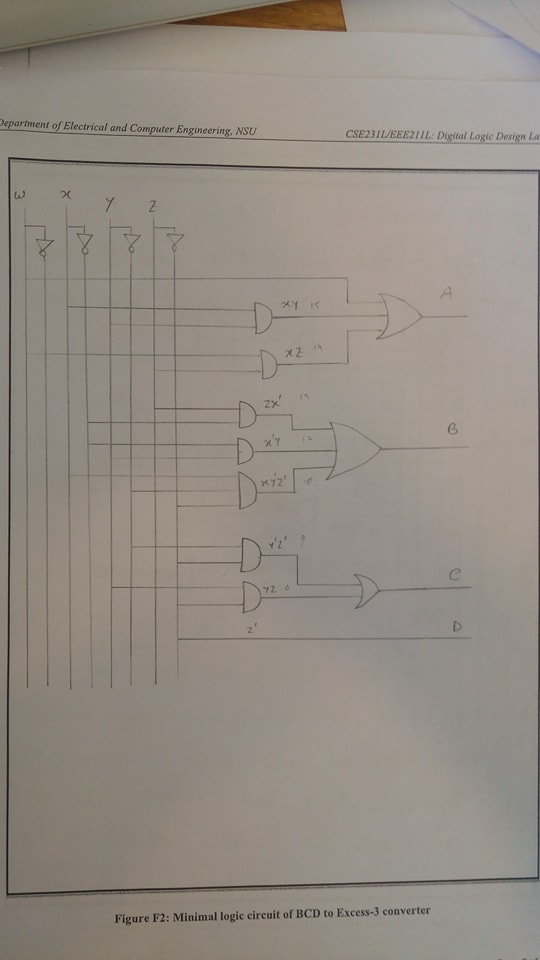 Department of Electrical and Computer Engineering, NSU
CSE231L/EEE211L: Digital Logic Design La
W x Y Z
A
xY 15
xZ 14
Zx'
B
x'Y 12
xY'Z'
Y'Z' 9
YZ
C
Z'
D
Figure F2: Minimal logic circuit of BCD to Excess-3 converter